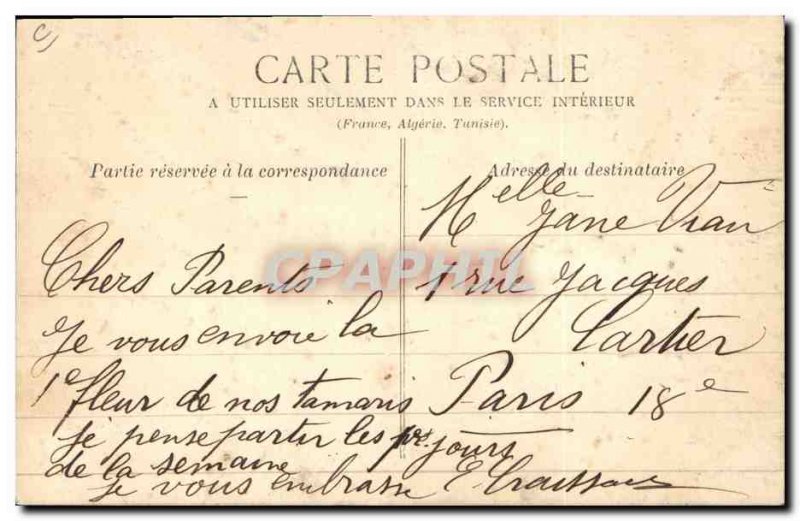 CARTE POSTALE
A UTILISER SEULEMENT DANS LE SERVICE INTÉRIEUR
(France, Algérie, Tunisie).
Partie réservée à la correspondance
Adresse du destinataire
Chers Parents
Je vous envoie la
1e fleur de nos tamaris
je pense partir les pers jours
de la semaine
je vous embrasse
Melle Jane Vian
1 rue Jacques
Cartier
Paris 18e
CPAPHIL